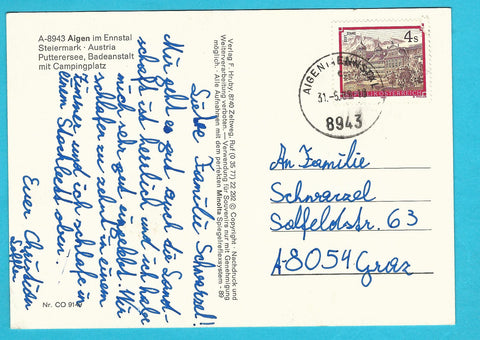 A-8943 Aigen im Ennstal
Steiermark · Austria
Putterersee, Badeanstalt
mit Campingplatz
Liebe Familie Schwarzel!
Mir geht es gut auch die Land-
schaft ist herrlich und ich habe
mich sehr gut eingelebt. Wir
schlafen zu zehnt in einem
Zimmer und ich schlafe in
einem Stockbett oben.
Euer Christian
Nr. CO 9149
Verlag F. Hruby, 8740 Zeltweg, Ruf (0 35 77) 22 292 © Copyright · Nachdruck und
Weiterverarbeitung verboten. — Verwendung für Souvenirs nur mit Genehmigung
möglich. Alle Aufnahmen mit dem perfekten Minolta Spiegelreflexsystem · 89
4 S
REPUBLIK ÖSTERREICH
AIGEN I. ENNSTAL
8943
An Familie
Schwarzel
Solfeldstr. 63
A-8054 Graz